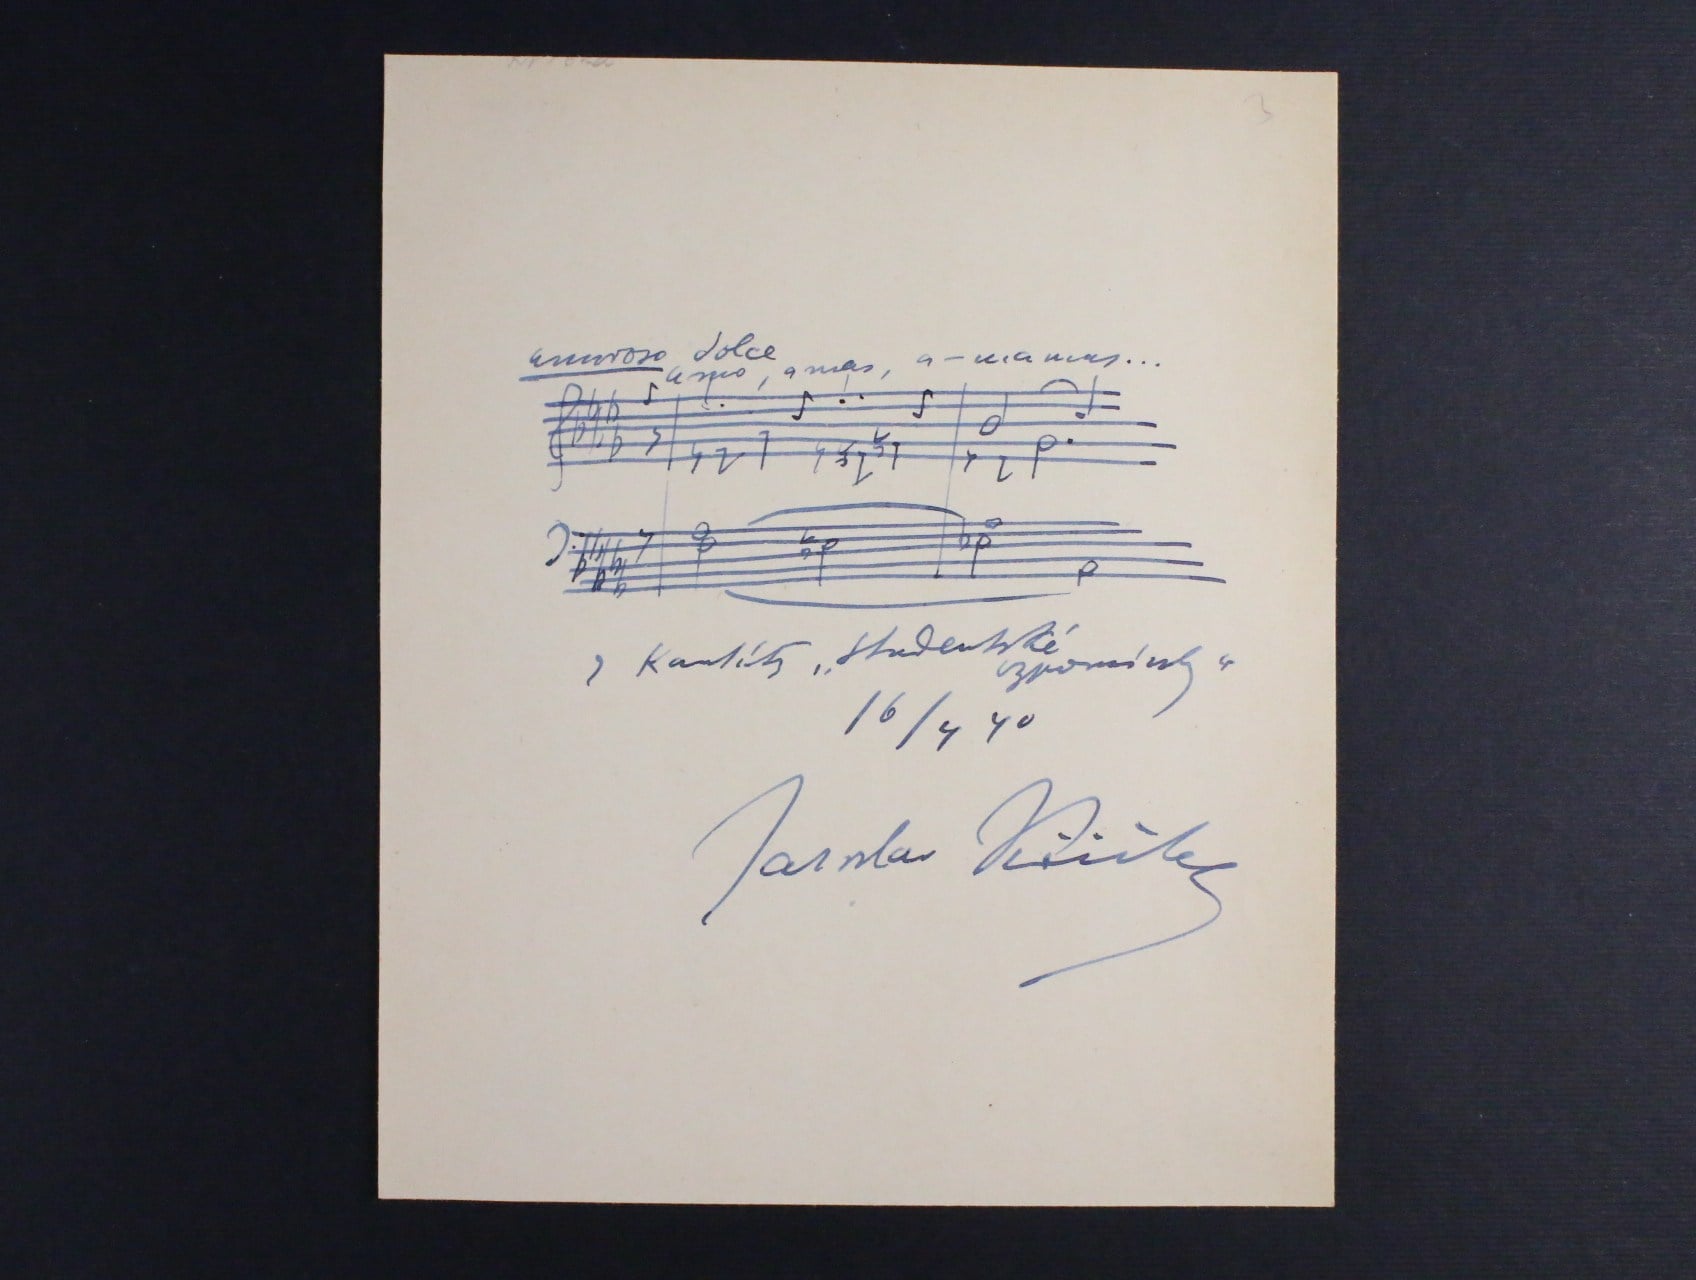 amoroso dolce
amo, amas, a-mamus...
z Kantáty „Studentské
vzpomínky“
16/4 40
Jaroslav Křička
3